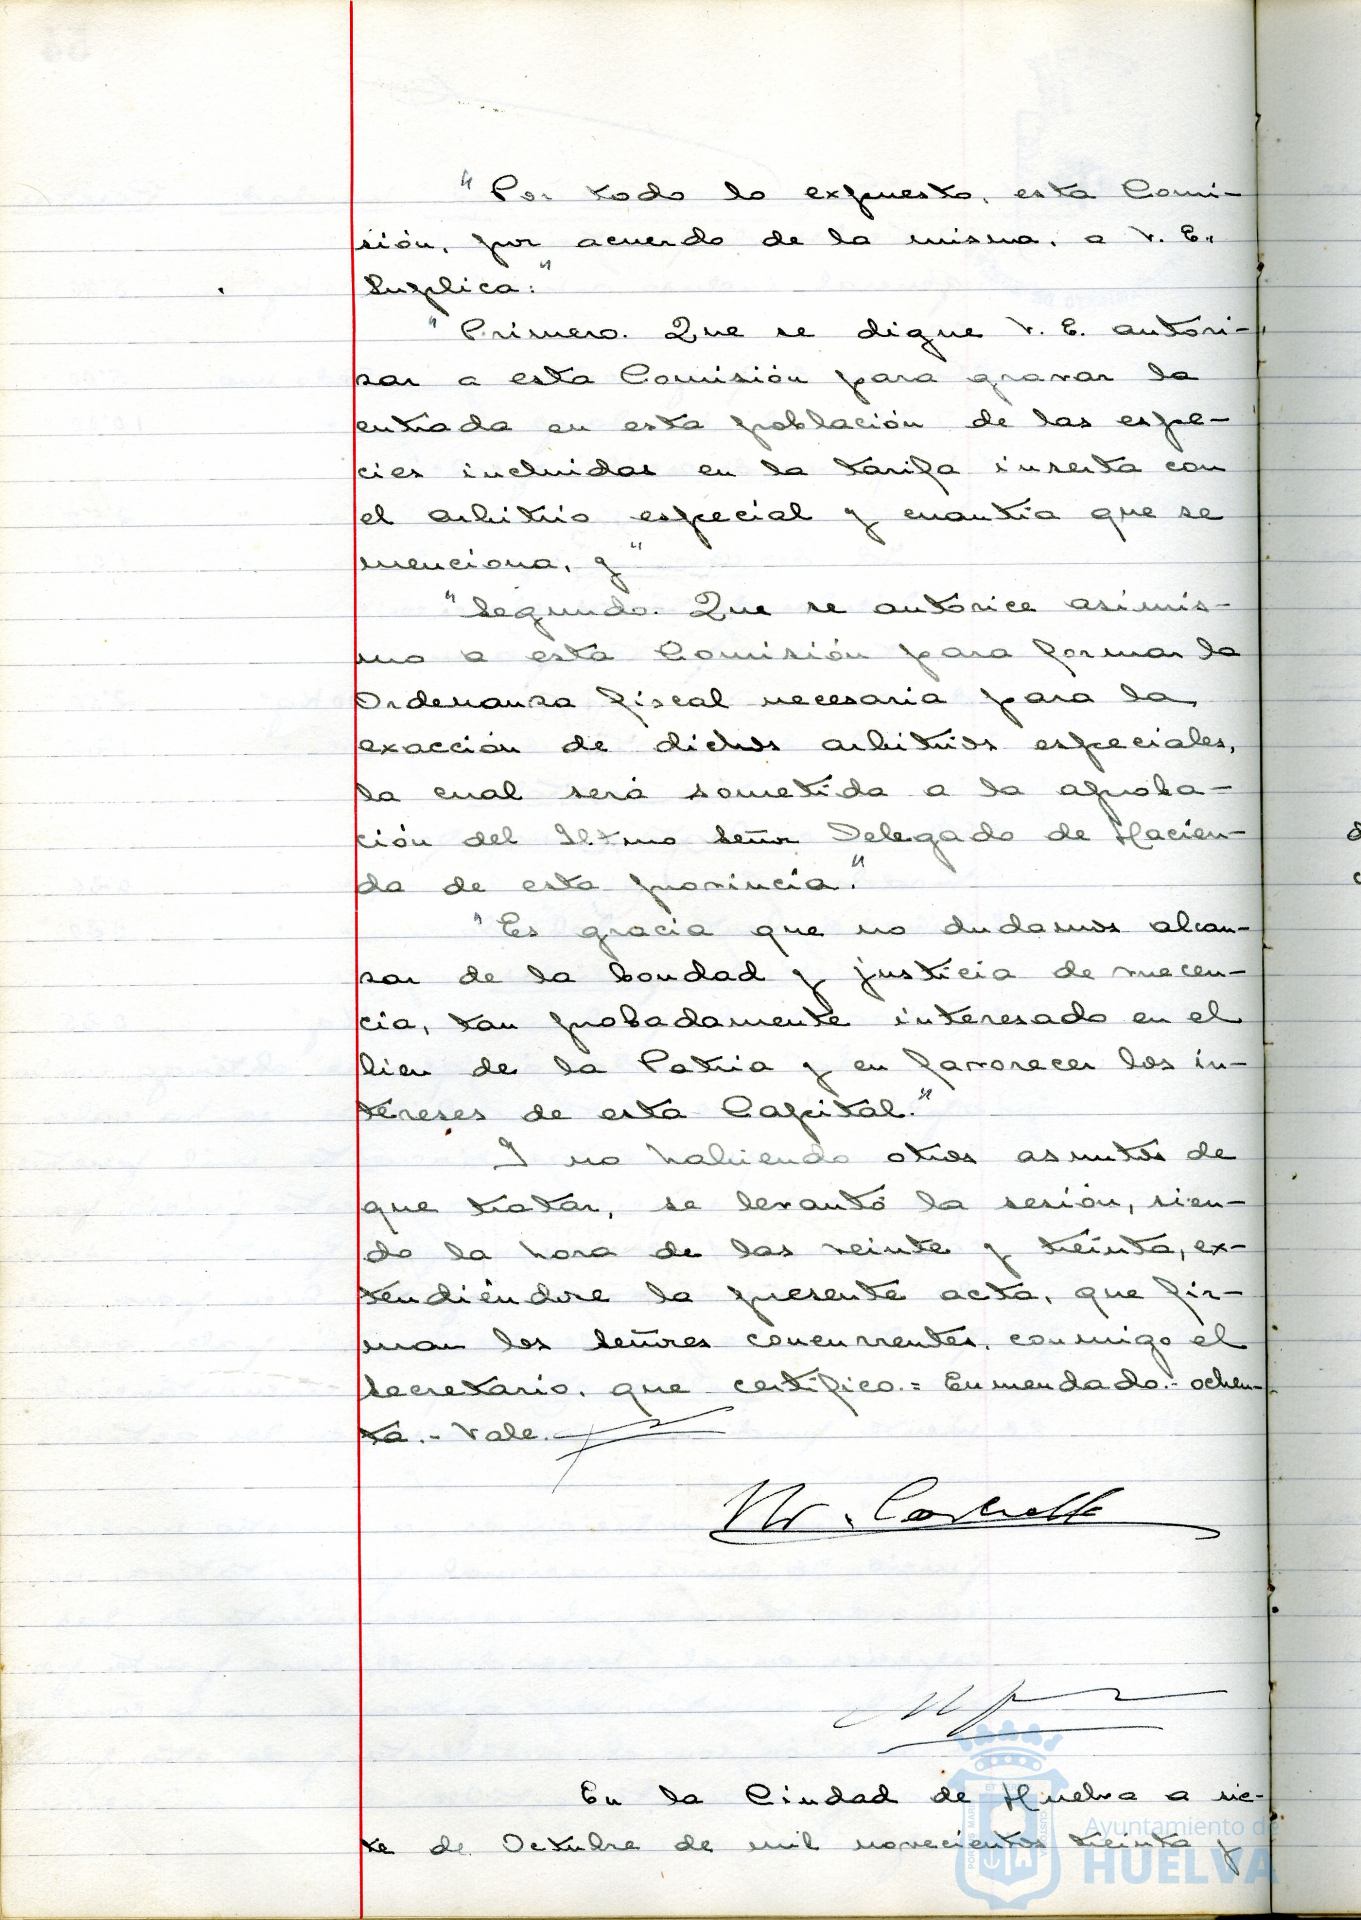 "Por todo lo expuesto, esta Comi-
sión, por acuerdo de la misma, a V. E.
Suplica:"
"Primero. Que se digne V. E. autori-
zar a esta Comisión para gravar la
entrada en esta población de las espe-
cies incluidas en la tarifa inserta con
el arbitrio especial y cuantía que se
menciona, y"
"Segundo. Que se autorice asimis-
mo a esta Comisión para formar la
Ordenanza fiscal necesaria para la
exacción de dichos arbitrios especiales,
la cual será sometida a la aproba-
ción del Iltmo Señor Delegado de Hacien-
da de esta provincia."
"Es gracia que no dudamos alcan-
zar de la bondad y justicia de vuecen-
cia, tan probadamente interesado en el
bien de la Patria y en favorecer los in-
tereses de esta Capital."
Y no habiendo otros asuntos de
que tratar, se levantó la sesión, sien-
do la hora de las veinte y treinta, ex-
tendiéndose la presente acta, que fir-
man los Señores concurrentes, conmigo el
Secretario, que certifico.= Enmendado.- ochen-
ta.- Vale.
En la Ciudad de Huelva a sie-
te de Octubre de mil novecientos treinta y
Ayuntamiento de
HUELVA